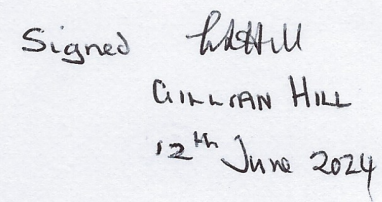 Signed
GILLIAN HILL
12th June 2024